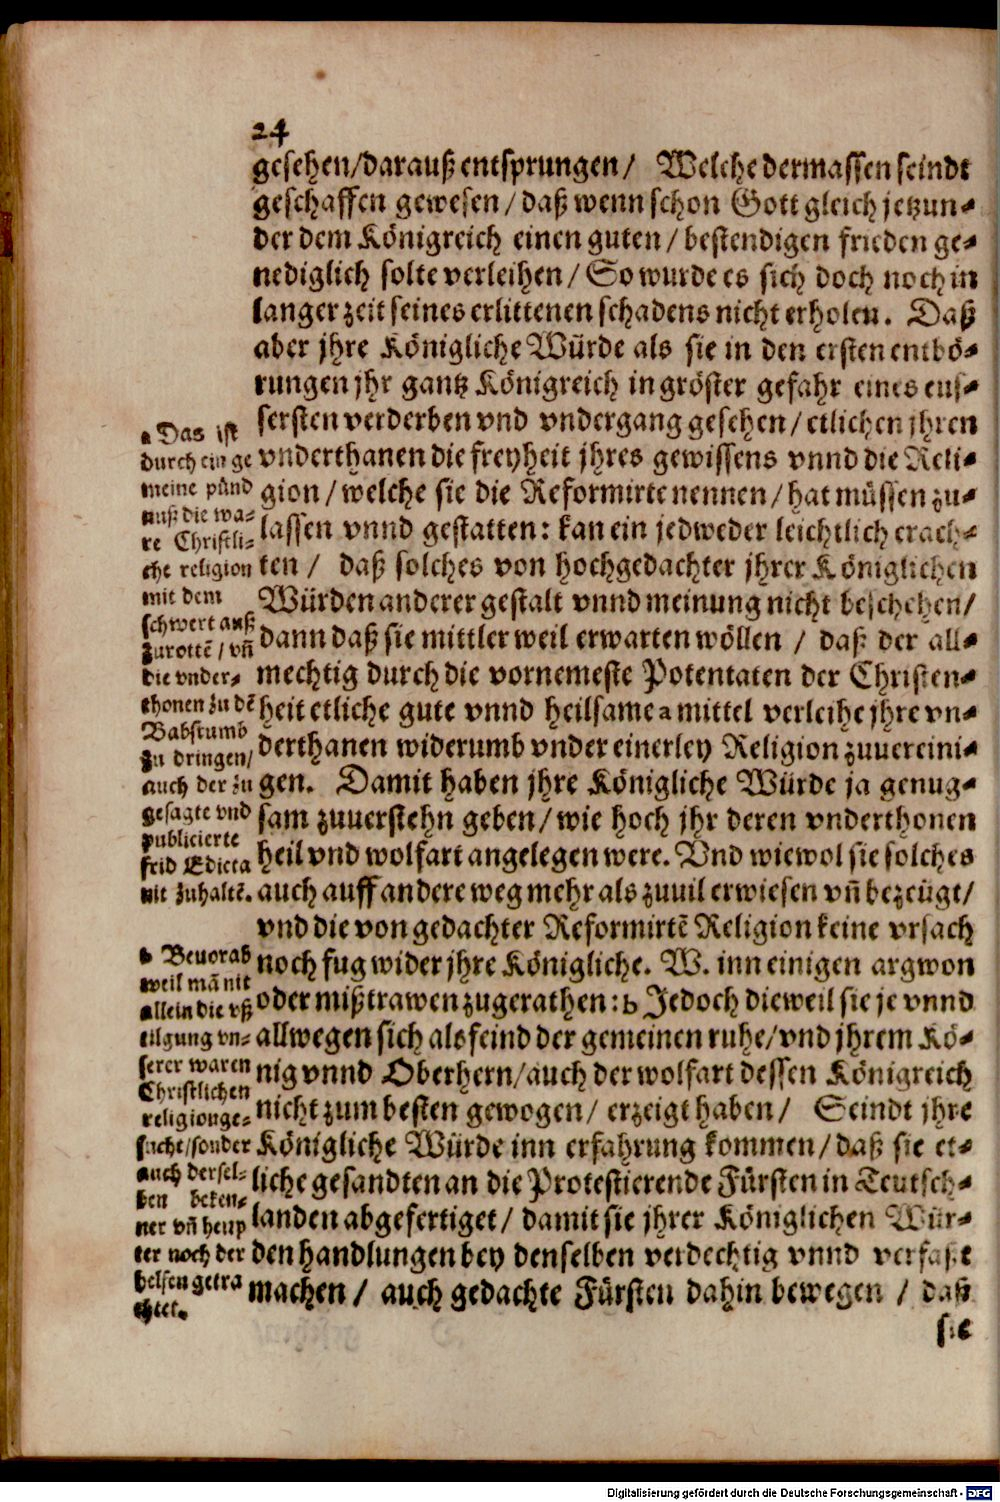 24
gesehen/darauß entsprungen/ Welche dermassen seindt
geschaffen gewesen/daß wenn schon Gott gleich jetzun-
der dem Königreich einen guten/bestendigen frieden ge-
nediglich solte verleihen/So wurde es sich doch noch in
langer zeit seines erlittenen schadens nicht erholen. Daß
aber jhre Königliche Würde als sie in den ersten entbö-
rungen jhr gantz Königreich in gröster gefahr eines eus-
sersten verderben vnd vndergang gesehen/etlichen jhren
vnderthanen die freyheit jhres gewissens vnnd die Reli-
gion/welche sie die Reformirte nennen/hat müssen zu-
lassen vnnd gestatten: kan ein jedweder leichtlich erach-
ten/ daß solches von hochgedachter jhrer Königlichen
Würden anderer gestalt vnnd meinung nicht beschehen/
dann daß sie mittler weil erwarten wöllen / daß der all-
mechtig durch die vornemeste Potentaten der Christen-
heit etliche gute vnnd heilsame a mittel verleihe jhre vn-
derthanen widerumb vnder einerley Religion zuuereini-
gen. Damit haben jhre Königliche Würde ja genug-
sam zuuerstehn geben/wie hoch jhr deren vnderthonen
heil vnd wolfart angelegen were. Vnd wiewol sie solches
auch auff andere weg mehr als zuuil erwiesen vñ bezeügt/
vnd die von gedachter Reformirtẽ Religion keine vrsach
noch fug wider jhre Königliche. W. inn einigen argwon
oder mißtrawen zugerathen: b Jedoch dieweil sie je vnnd
allwegen sich als feind der gemeinen ruhe/vnd jhrem Kö-
nig vnnd Oberhern/auch der wolfart dessen Königreich
nicht zum besten gewogen/ erzeigt haben/ Seindt jhre
Königliche Würde inn erfahrung kommen/daß sie et-
liche gesandten an die Protestierende Fürsten in Teutsch-
landen abgefertiget/ damit sie jhrer Königlichen Wür-
den handlungen bey denselben verdechtig vnnd verfaßt
machen / auch gedachte Fürsten dahin bewegen / daß
sie
a Das ist
durch ein ge
meine pünd
nuß die wa-
re Christli-
che religion
mit dem
schwert auß
zurottẽ/vñ
die vnder-
thonen zu dẽ
Babstumb
zu dringen/
auch der zu
gesagte vnd
publicierte
frid Edicta
nit zuhaltẽ.
b Beuorab
weil mã nit
allein die vß
tilgung vn-
serer waren
Christlichen
religion ge-
suche/sonder
auch dersel-
ben beken-
ner vñ heup
ter noch der
helsen getra
chtet.
Digitalisierung gefördert durch die Deutsche Forschungsgemeinschaft - DFG